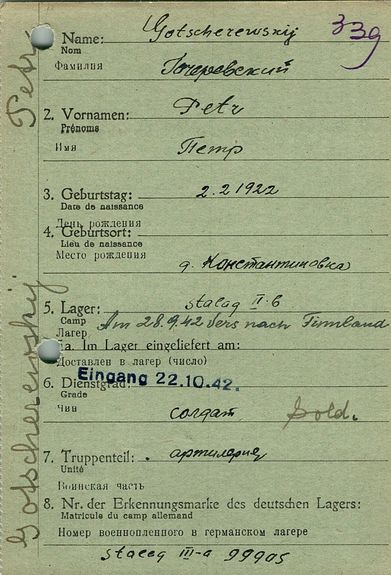 339
1. Name: Gotscherewskij
Nom
Фамилия Гочеревский
2. Vornamen: Petr
Prénoms
Имя Петр
3. Geburtstag: 2.2 1922
Date de naissance
День рождения
4. Geburtsort:
Lieu de naissance
Место рождения д. Константиновка
5. Lager: stalag II-b
Camp Am 28.9.42 Vers nach Finnland
Лагерь
5a. Im Lager eingeliefert am:
Доставлен в лагерь (число)
Eingang 22.10.42.
6. Dienstgrad:
Grade
Чин солдат Sold.
7. Truppenteil: артилерия
Unité
Воинская часть
8. Nr. der Erkennungsmarke des deutschen Lagers:
Matricule du camp allemand
Номер военнопленного в германском лагере
stalag III-a 99905
Gotscherewskij Petr